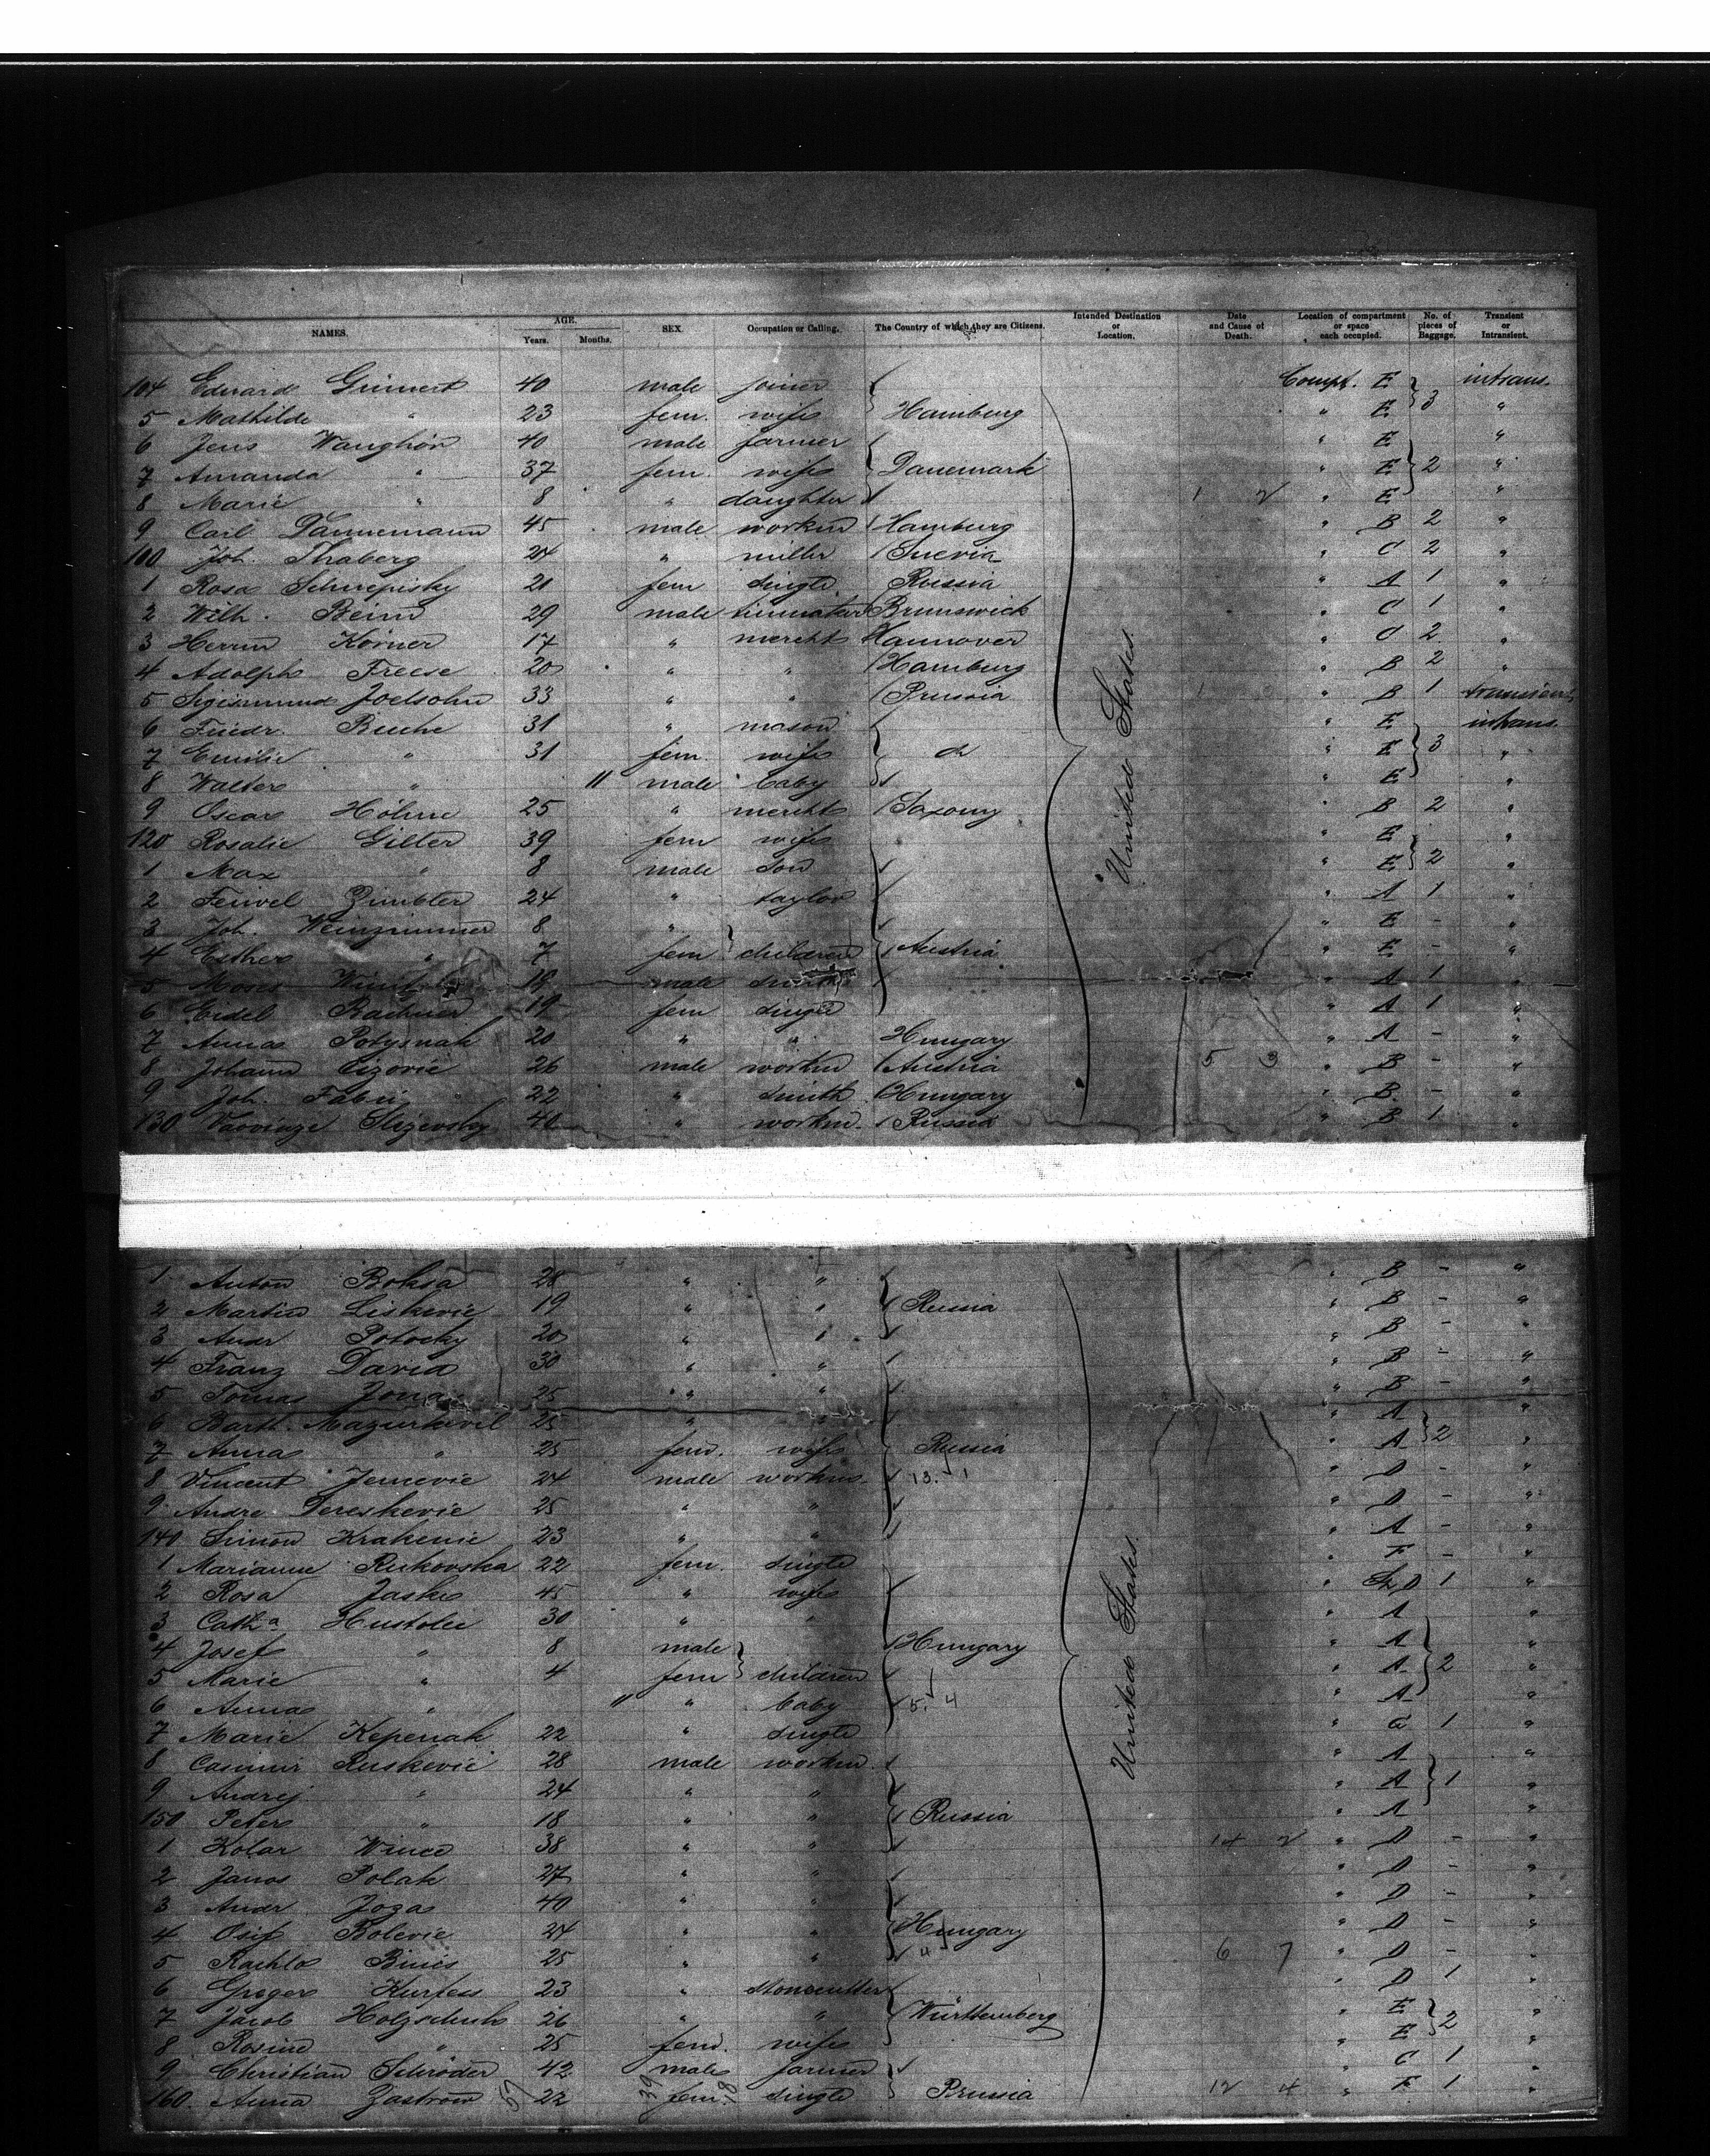 NAMES. AGE. Years. Months. SEX. Occupation or Calling. The Country of which they are Citizens. Intended Destination or Location. Date and Cause of Death. Location of compartment or space each occupied. No. of pieces of Baggage. Transient or Intransient.
104 Eduard 40 male joiner Compt. E intrans.
5 Mathilde " 23 fem. wife Hamburg " E 3 "
6 Jens 40 male farmer " E "
7 Amanda " 37 fem. wife Danemark " E 2 "
8 Marie " 8 " daughter 1 2 " E "
9 Carl Dannemann 45 male workm Hamburg " B 2 "
100 Joh. Thaberg 24 " miller " C 2 "
1 Rosa 21 fem single Russia " A 1 "
2 Wilh. Beim 29 male Brunswick " C 1 "
3 Herm Körner 17 " mercht Hannover " C 2 "
4 Adolph Freese 20 " " Hamburg " B 2 "
5 Sigismund Joelsohn 33 " " Prussia 1 " B 1 transient
6 Friedr. 31 " mason " E intrans
7 Emilie " 31 fem. wife do " E 3 "
8 Walter " 11 male baby " E "
9 Oscar Höhne 25 " mercht Saxony " B 2 "
120 Rosalie Gilter 39 fem wife " E "
1 Max " 8 male son " E 2 "
2 Feiwel 24 " taylor " A 1 "
3 Joh. 8 " " E - "
4 Esther " 7 fem children Austria " E - "
5 Moses 18 male smith " A 1 "
6 Eidel 19 fem single " A 1 "
7 Anna Potysnak 20 " " Hungary " A - "
8 Johann Cizovic 26 male workm Austria 5 3 " B - "
9 Joh. Fabri 22 " smith Hungary " B - "
130 40 " workm. Russia " B 1 "
1 Anton Boksa 28 " " " B - "
2 Martin Liskevic 19 " " Russia " B - "
3 Andr Potocky 20 " " " B - "
4 Franz David 30 " " " B - "
5 Tomas 25 " " " B - "
6 Barth. 25 " " " A "
7 Anna " 25 fem. wife Russia " A 2 "
8 Vincent 24 male workm. 13. 1 " D - "
9 Andre Dereskevic 25 " " " D - "
140 Simon 23 " " " A - "
1 Marianne Rukovska 22 fem. single " F - "
2 Rosa Jaske 45 " wife " 1 "
3 Cath.a 30 " " " A "
4 Josef " 8 male Hungary " A "
5 Marie " 4 fem children " A 2 "
6 Anna " 11 " baby 5. 4 " A "
7 Marie Kepenak 22 " single " G 1 "
8 Casimir Ruskevic 28 male workm. " A "
9 Andrej " 24 " " " A 1 "
150 Peter " 18 " " Russia " A "
1 Kolar 38 " " 14 2 " D - "
2 Janos Polak 27 " " " D - "
3 Andr Joza 40 " " " D - "
4 Osip Bolevic 24 " " Hungary " D - "
5 25 " " 4 6 7 " D - "
6 Greger Kurfess 23 " stonecutter " D 1 "
7 Jacob Holzschuh 26 " " Württemberg " E "
8 Rosine " 25 fem. wife " E 2 "
9 Christian Schröder 42 male farmer " C 1 "
160. Anna Zastrow 22 fem. single Prussia 12 4 " F 1 "
United States.
United States.